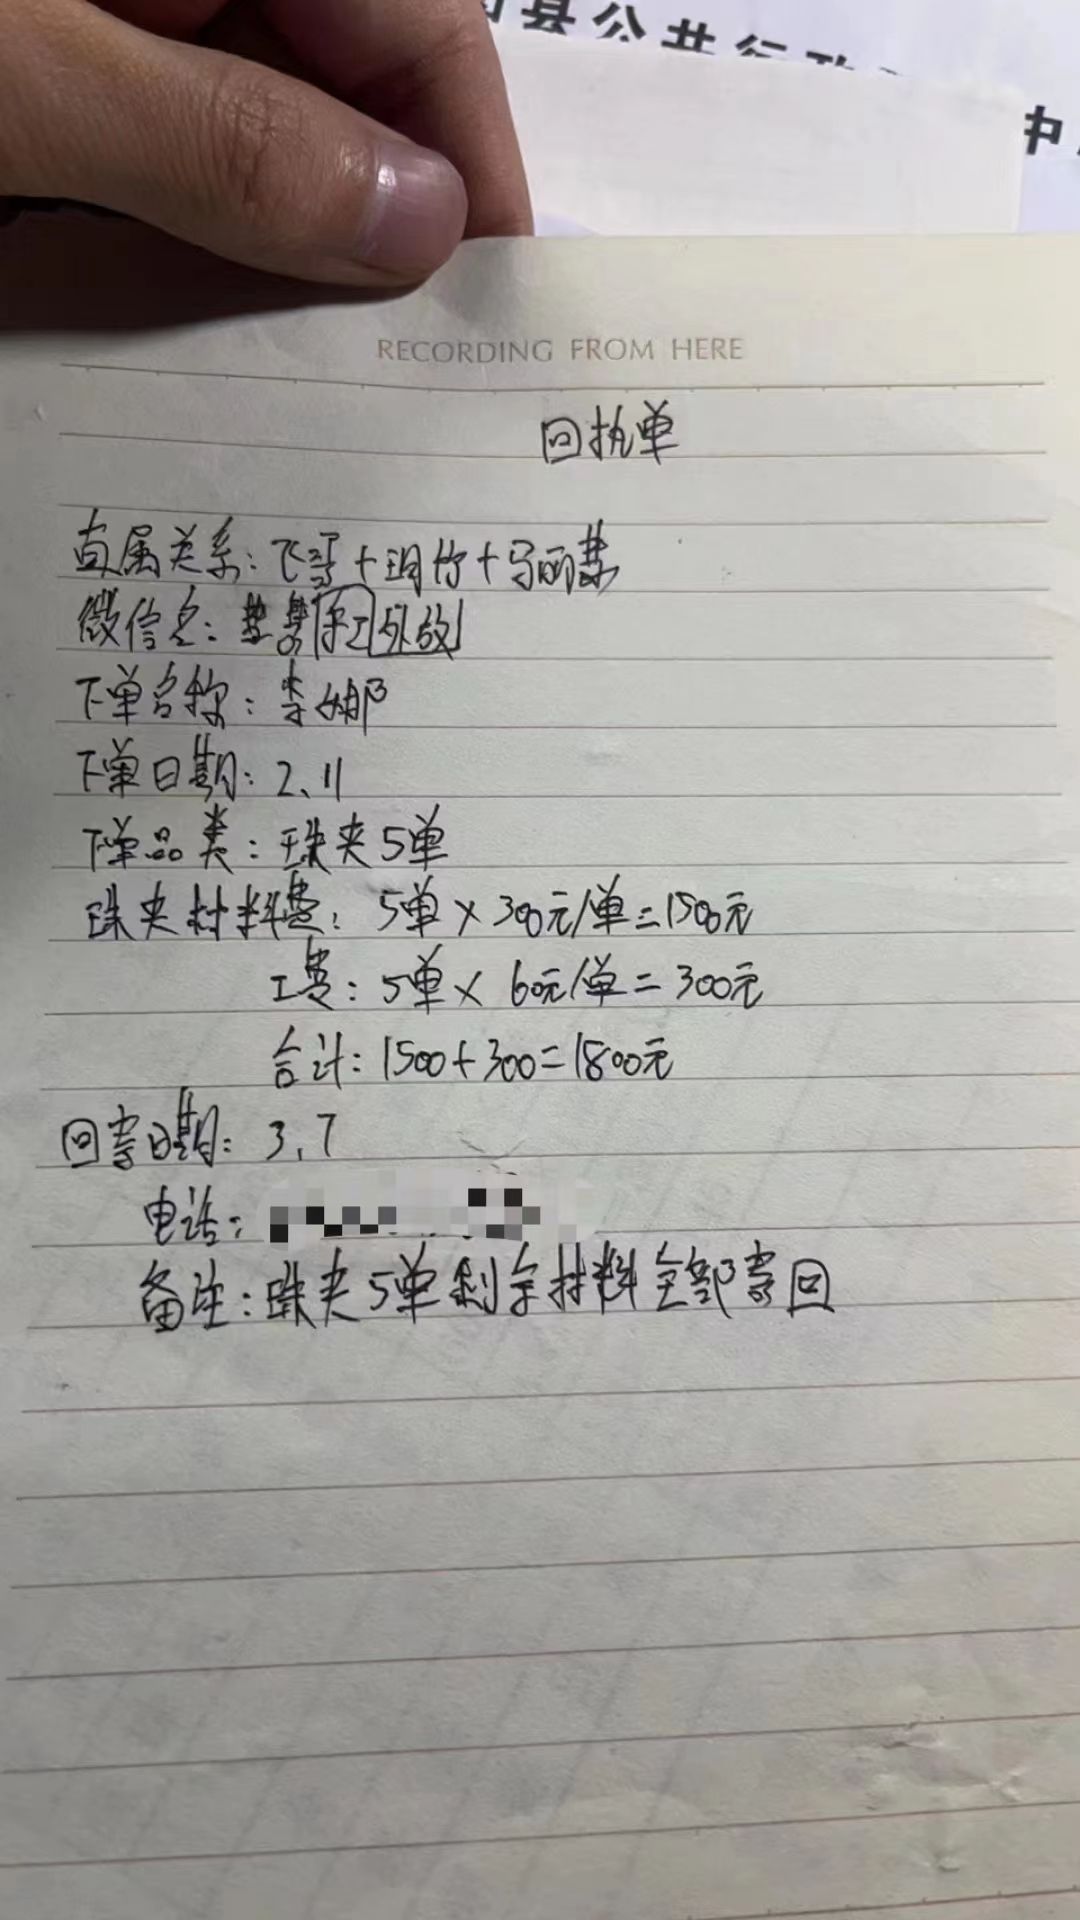 县公共行政
中
RECORDING FROM HERE
回执单
直属关系：飞哥+玥竹+马丽慧
微信名：慧慧[手工外放]
下单名称：李娜
下单日期：2、11
下单品类：珠夹5单
珠夹材料费：5单×300元/单=1500元
工费：5单×60元/单=300元
合计：1500+300=1800元
回寄日期：3、7
电话：
备注：珠夹5单剩余材料全部寄回